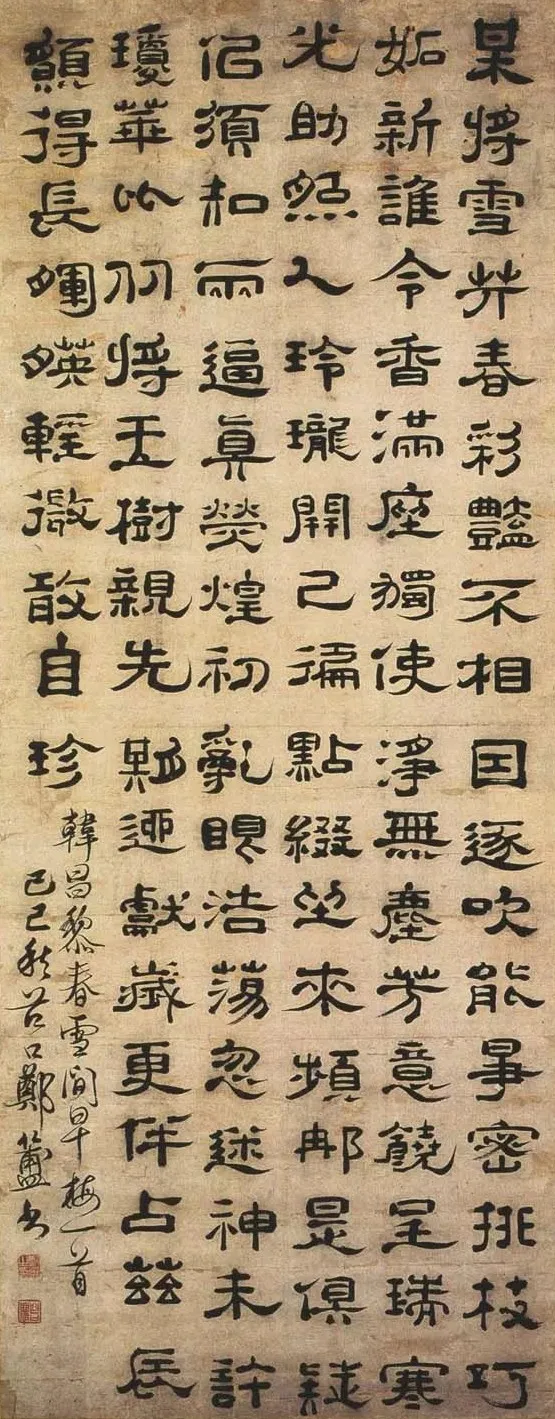 某將雪共春彩豔不相因逐吹能爭密排枝巧
妬新誰令香滿座獨使淨無塵芳意饒呈瑞寒
光助照人玲瓏開已徧點綴坐來頻那是俱疑
佀須知兩逼真熒煌初亂眼浩蕩忽迷神未許
瓊華比从將玉樹親先期迎獻歲更伴占茲辰
願得長輝映輕微敢自珍
韓昌黎春雪間早梅一首
己巳秋谷口鄭簠書